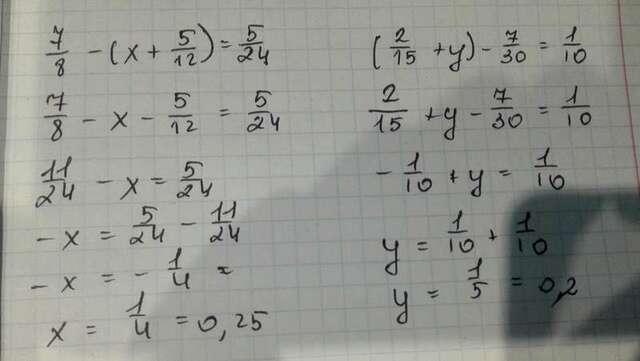 7/8 - (x + 5/12) = 5/24
7/8 - x - 5/12 = 5/24
11/24 - x = 5/24
- x = 5/24 - 11/24
- x = - 1/4 =
x = 1/4 = 0,25
(2/15 + y) - 7/30 = 1/10
2/15 + y - 7/30 = 1/10
- 1/10 + y = 1/10
y = 1/10 + 1/10
y = 1/5 = 0,2